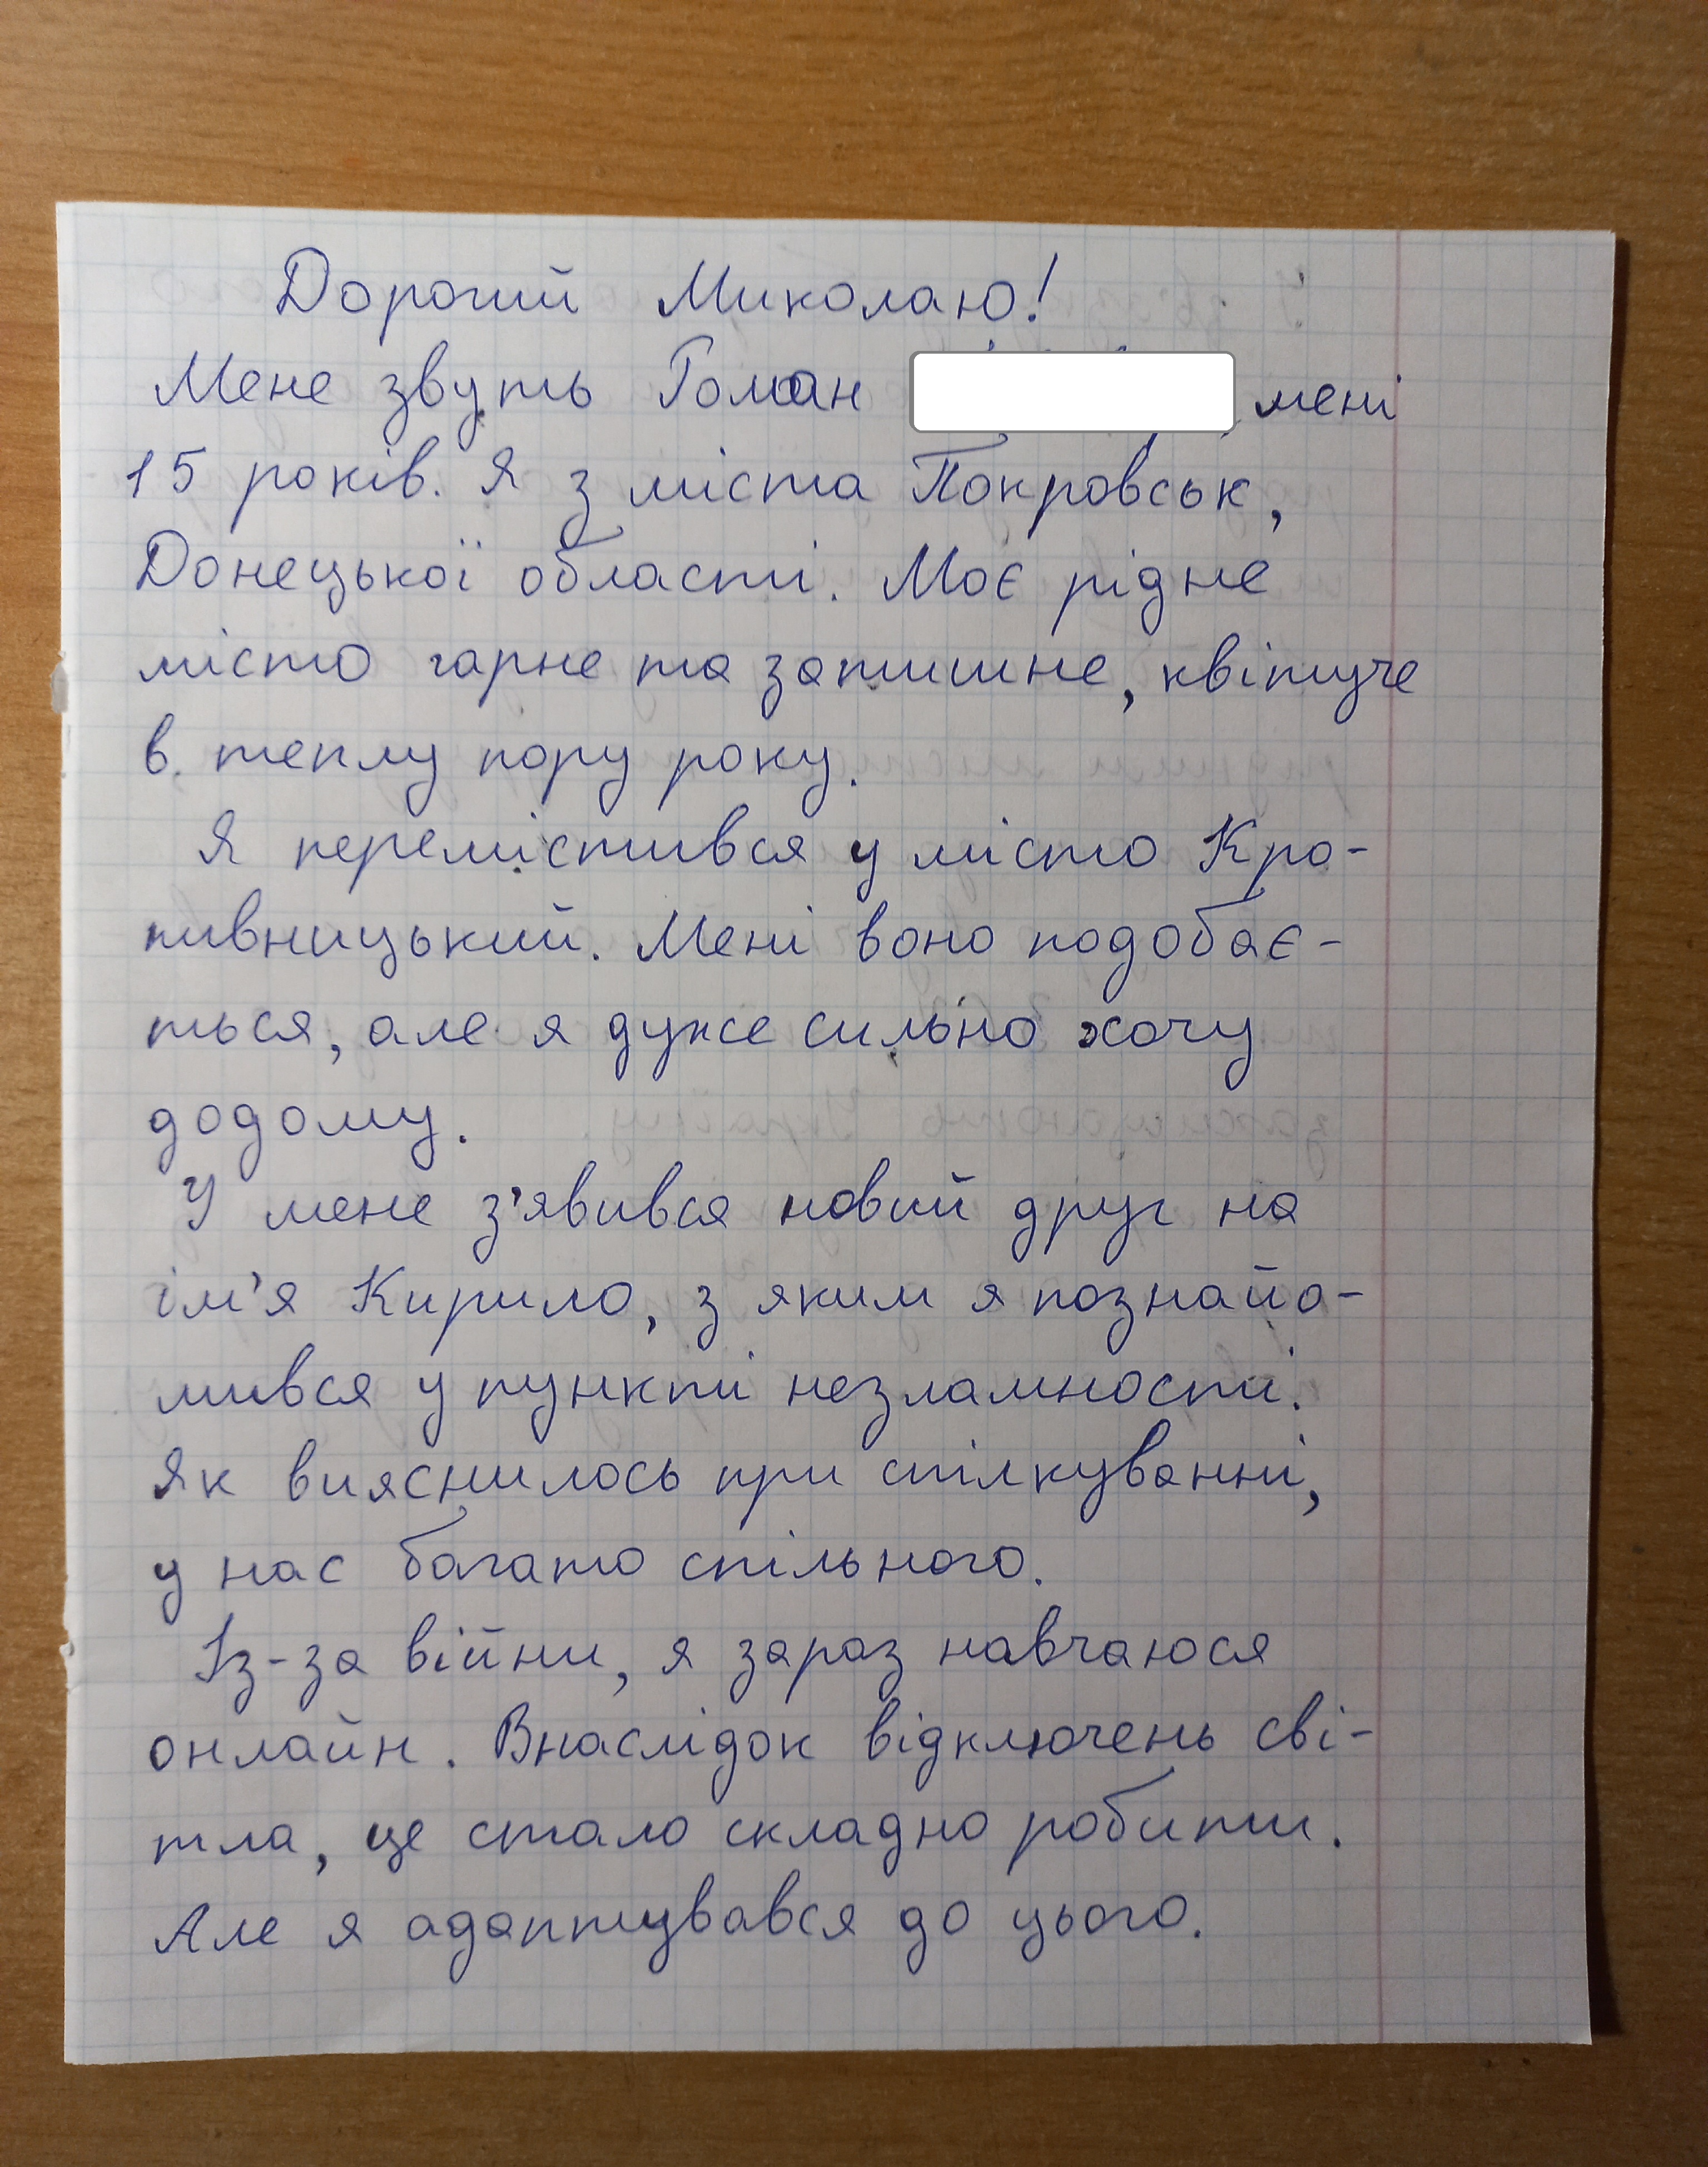 Дорогий Миколаю!
Мене звуть Роман , мені
15 років. Я з міста Покровськ,
Донецької області. Моє рідне
місто гарне та затишне, квітуче
в теплу пору року.
Я перемістився у місто Кро-
пивницький. Мені воно подобає-
ться, але я дуже сильно хочу
додому.
У мене з'явився новий друг на
ім'я Кирило, з яким я познайо-
мився у пункті незламності.
Як вияснилось при спілкуванні,
у нас багато спільного.
Із-за війни, я зараз навчаюся
онлайн. Внаслідок відключень сві-
тла, це стало складно робити.
Але я адаптувався до цього.